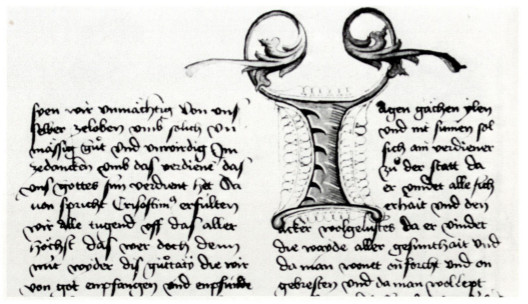 syen wir unmächtig von uns
selber zeloben umb solich un
mässig güt und unwirdig Im
zedancken umb das verdiene das
uns gottes sun verdient het Da
von spricht Crisostimus erfulten
wir alle tugend uff das aller
höchst das wer doch denn
wider die wir
von got empfangen und empfinde
I
agen gächen ylen
und nit sumen sol
sich ain verdiener
zu der statt da
er vindet alle
erhait und den
acker da er vindet
die aller gesunthait und
da man wonet on forcht und on
gebresten und da man wol lept